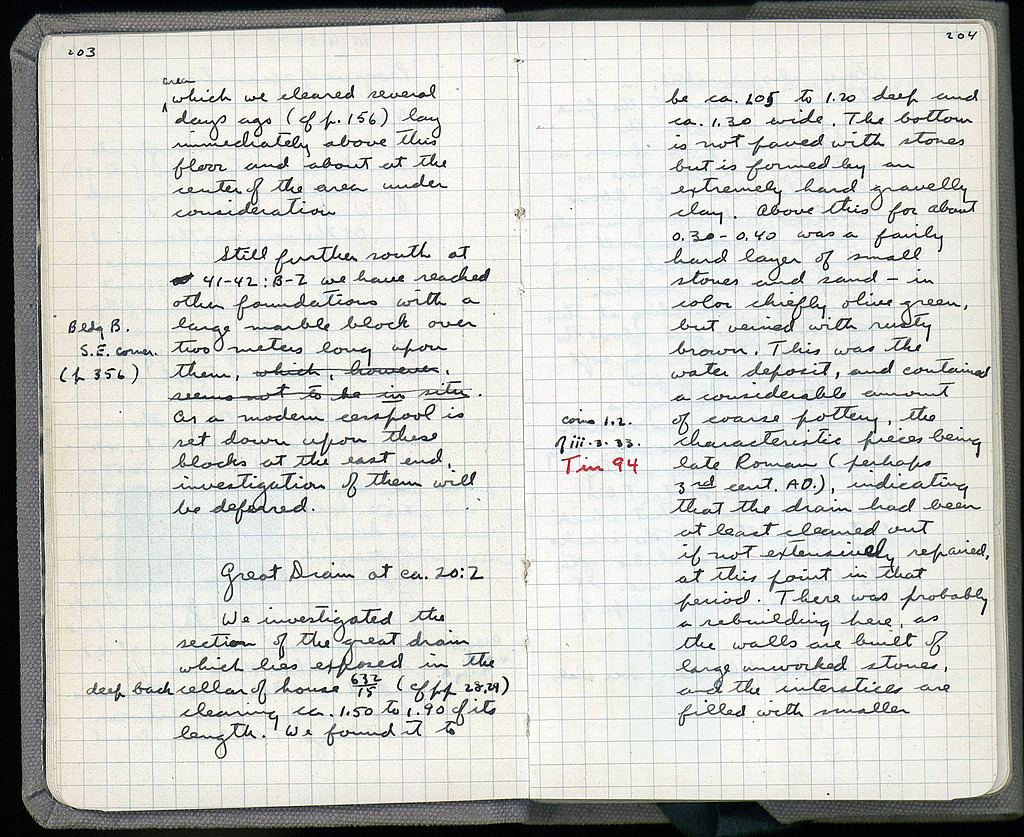 203
area
which we cleared several
days ago (cf p. 156) lay
immediately above this
floor and about at the
center of the area under
consideration
Still further south at
41-42: B-Z we have reached
other foundations with a
large marble block over
two meters long upon
them, which, however,
seems not to be in situ.
As a modern cesspool is
set down upon these
blocks at the east end,
investigation of them will
be deferred.
Bldg B.
S.E. corner.
(p 356)
Great Drain at ca. 20:2
We investigated the
section of the great drain
which lies exposed in the
deep back cellar of house 632/15 (cf pp 28,29)
clearing ca. 1.50 to 1.90 of its
length. We found it to
204
be ca. 1.05 to 1.20 deep and
ca. 1.30 wide. The bottom
is not paved with stones
but is formed by an
extremely hard gravelly
clay. Above this for about
0.30-0.40 was a fairly
hard layer of small
stones and sand - in
color chiefly olive green,
but veined with rusty
brown. This was the
water deposit, and contained
a considerable amount
of coarse pottery, the
characteristic pieces being
late Roman (perhaps
3rd cent. AD.), indicating
that the drain had been
at least cleaned out
if not extensively repaired,
at this point in that
period. There was probably
a rebuilding here, as
the walls are built of
large unworked stones,
and the interstices are
filled with smaller
coins 1.2.
of iii.3.33.
Tin 94